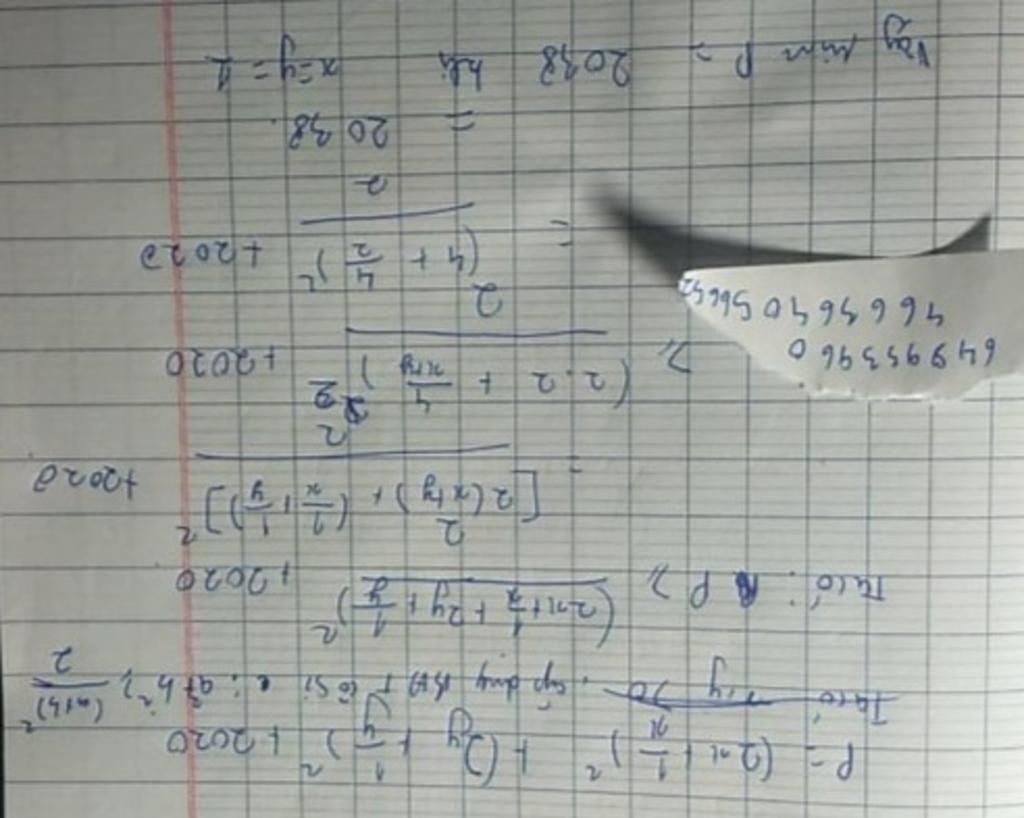 P = (2x + 1/x)² + (2y + 1/y)² + 2020
Ta có x, y > 0. áp dụng BĐT Cô Si : a² + b² ≥ (a+b)²/2
Ta có : P ≥ (2x + 1/x + 2y + 1/y)²/2 + 2020
= [2(x+y) + (1/x + 1/y)]²/2 + 2020
≥ (2.2 + 4/(x+y))²/2 + 2020
= (4 + 4/2)²/2 + 2020
= 2038.
Vậy min P = 2038 khi x = y = 1
64995396 0